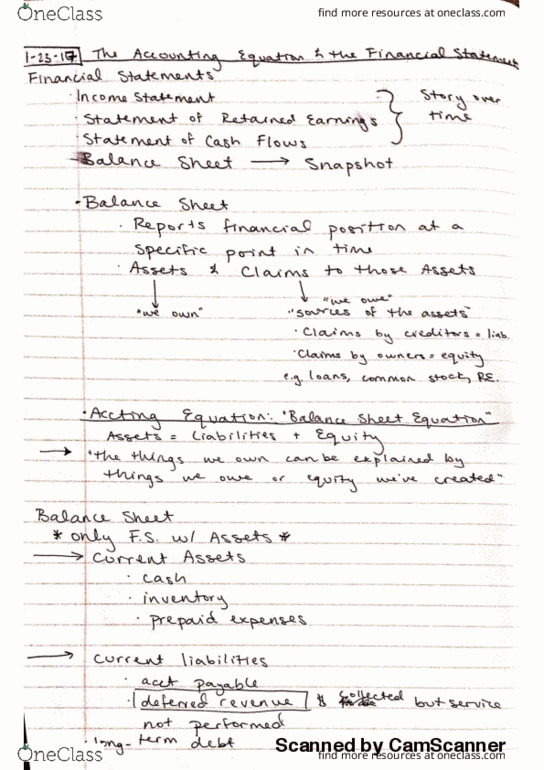 OneClass find more resources at oneclass.com
1-23-17 The Accounting Equation & the Financial Statement
Financial Statements
· Income Statement
· Statement of Retained Earnings
· Statement of Cash Flows
Story over
time
Balance Sheet → Snapshot
· Balance Sheet
· Reports financial position at a
specific point in time
· Assets & Claims to those Assets
"we own"
"we owe"
"sources of the assets"
· Claims by creditors = liab.
· Claims by owners = equity
e.g. loans, common stock, RE.
· Accting Equation: "Balance Sheet Equation"
Assets = Liabilities + Equity
→ "the things we own can be explained by
things we owe or equity we've created"
Balance Sheet
* only F.S. w/ Assets *
→ Current Assets
· cash
· inventory
· prepaid expenses
→ Current liabilities
· acct payable
· deferred revenue $ collected but service
not performed
· long-term debt
Scanned by CamScanner
OneClass find more resources at oneclass.com